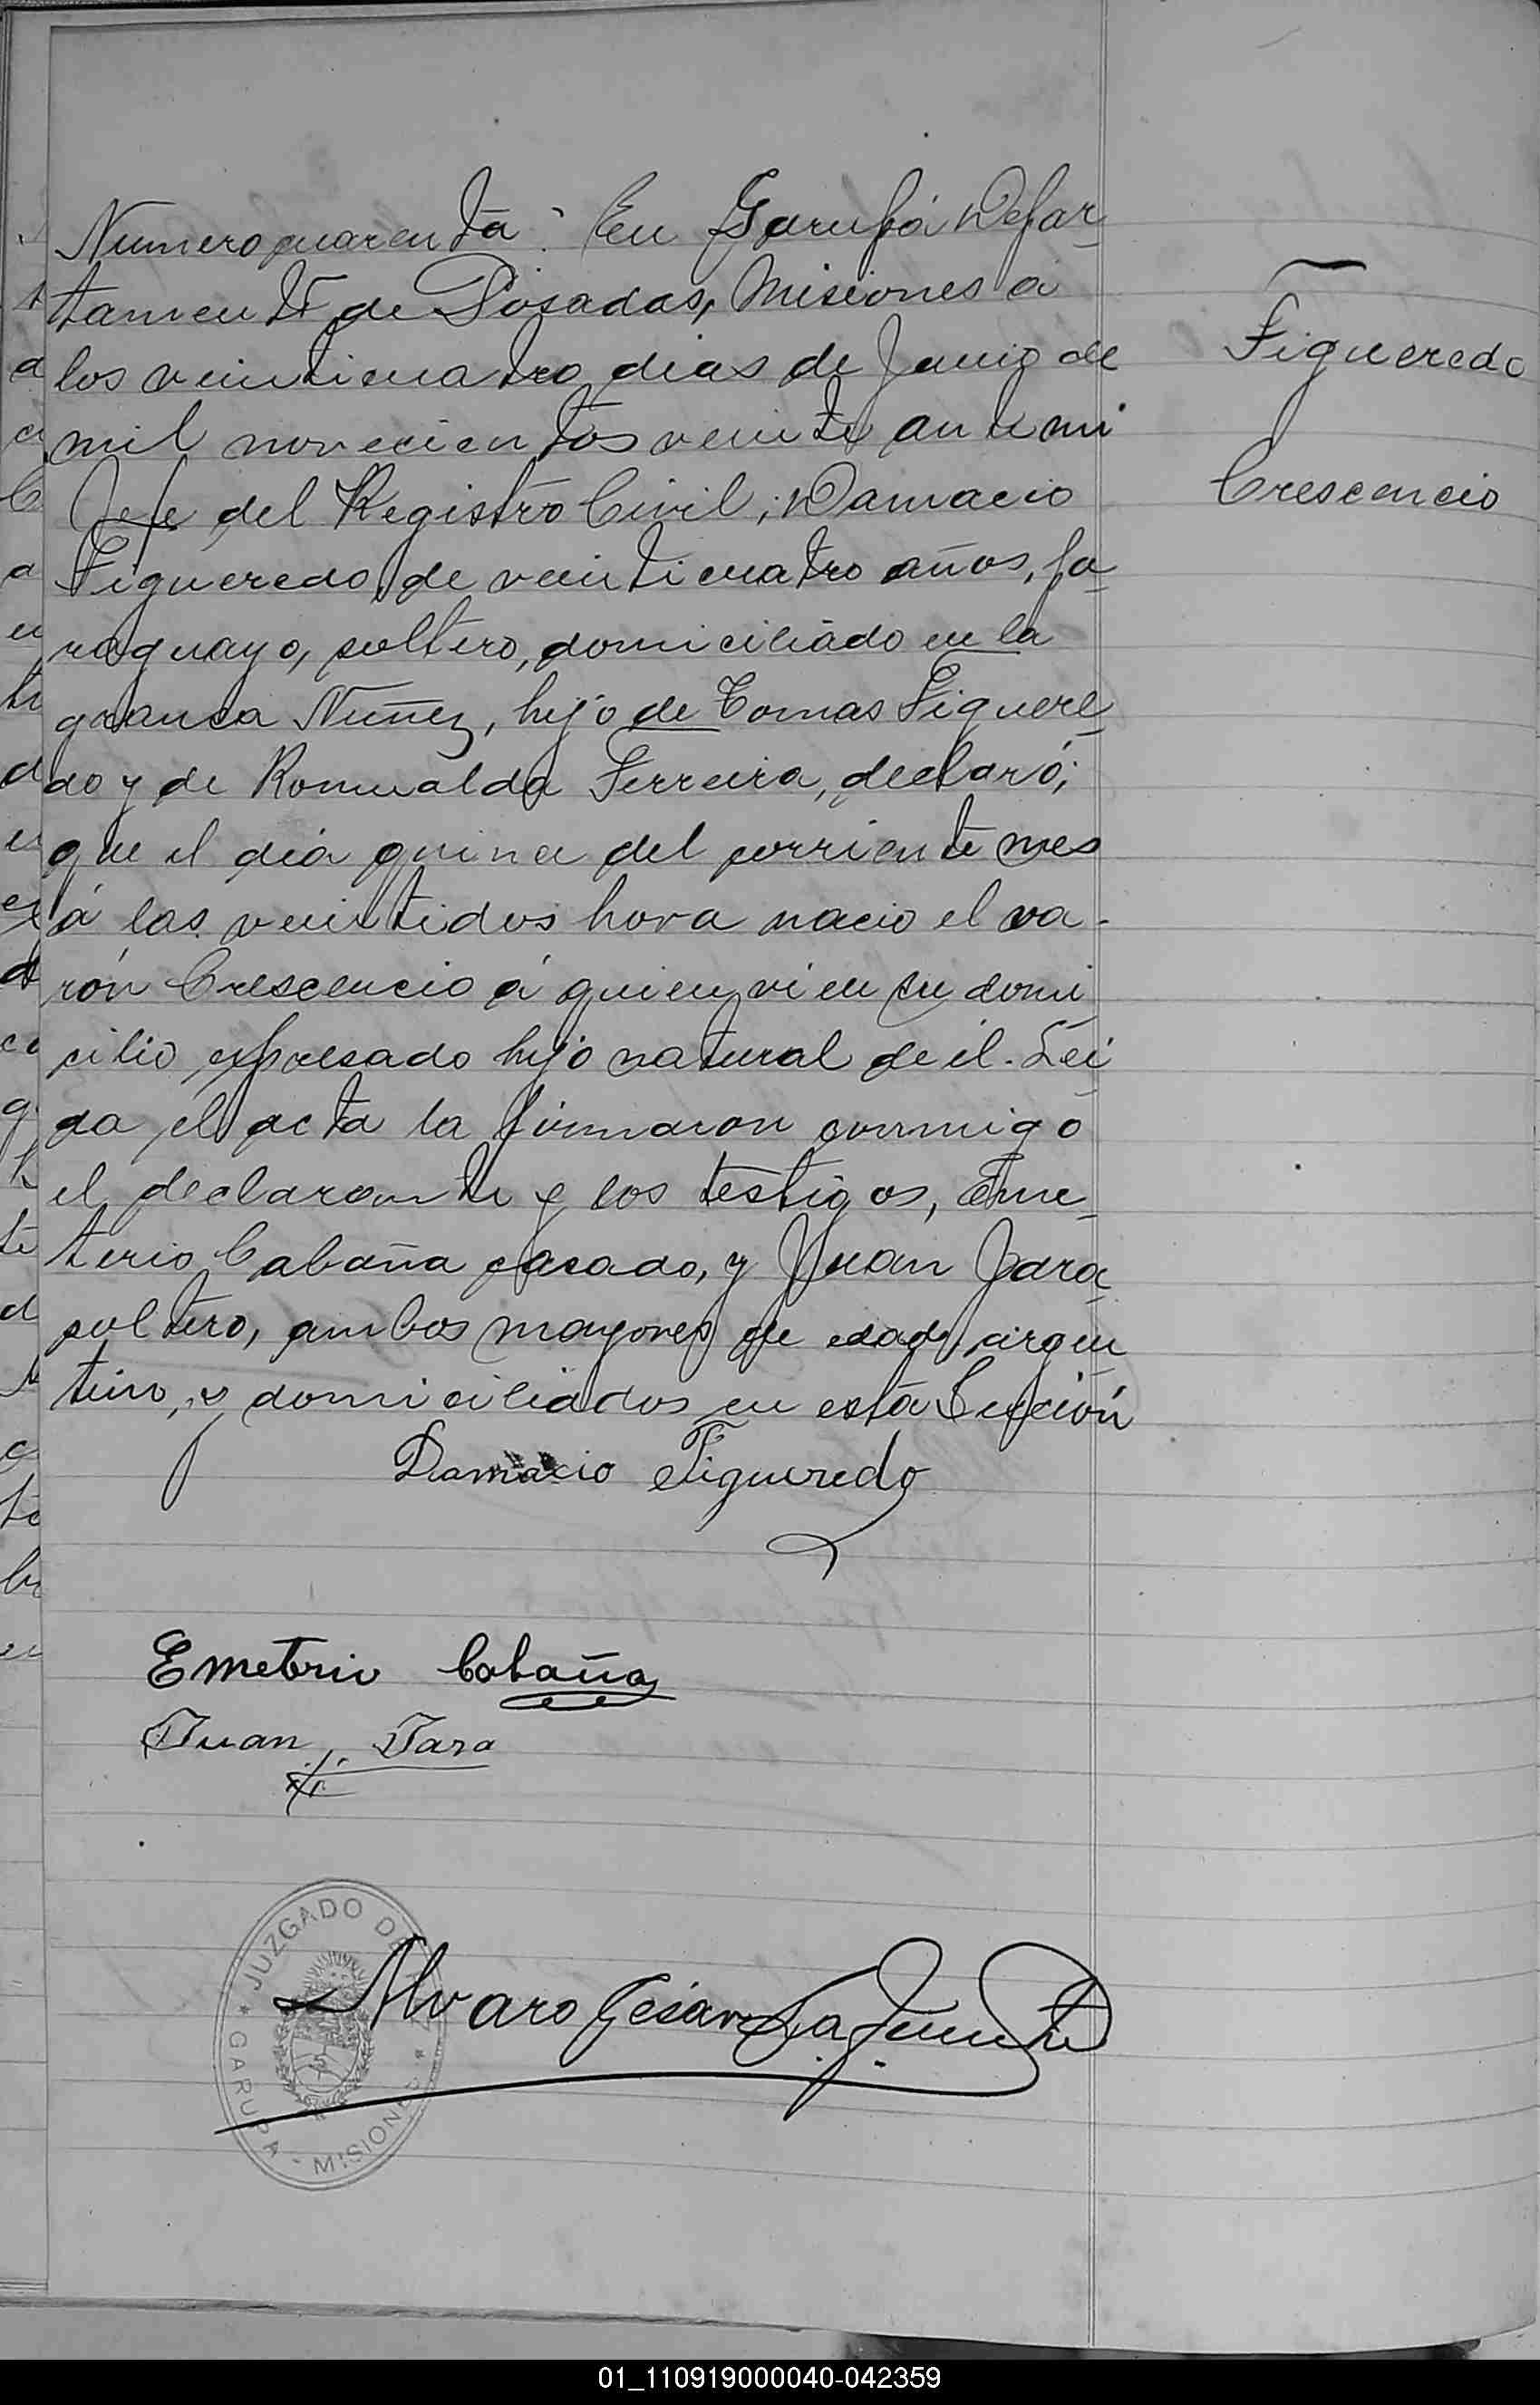 Numero cuarenta: En Garupá Depar-
tamento de Posadas, Misiones a
los veinticuatro dias de Junio de
mil novecientos veinte ante mi
Jefe del Registro Civil; Damacio
Figueredo, de veinticuatro años, pa-
raguayo, soltero, domiciliado en la
granja Nuñez, hijo de Tomas Figuere-
do y de Romualda Ferreira, declaró;
que el día quince del corriente mes
á las veintidos hora nacio el va-
rón Crescencio á quien vi en su domi
cilio expresado hijo natural de él. Leí
da el acta la firmaron conmigo
el declarante y los testigos, Eme-
terio Cabaña casado, y Juan Jara
soltero, ambos mayores de edad, argen
tino, y domiciliados en esta Sección
Damacio Figueredo
Emeterio Cabaña
Juan Jara
Alvaro César Lafuente
JUZGADO DE
GARUPA - MISIONES
Figueredo
Crescencio
01_110919000040-042359